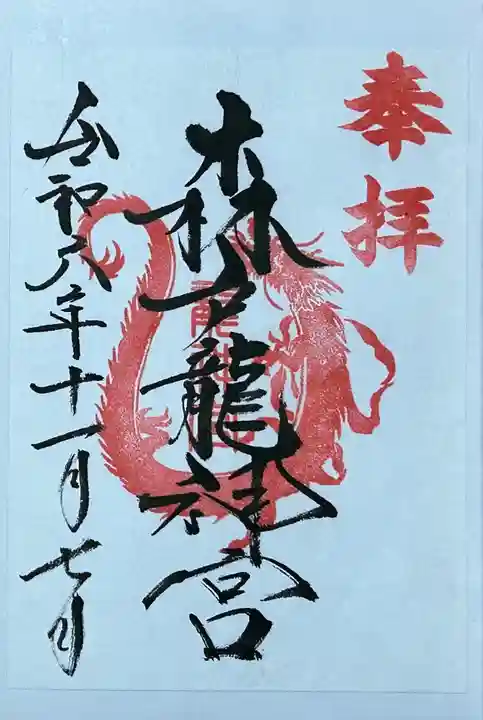 奉拝
森戸龍神宮
令和六年十一月七日